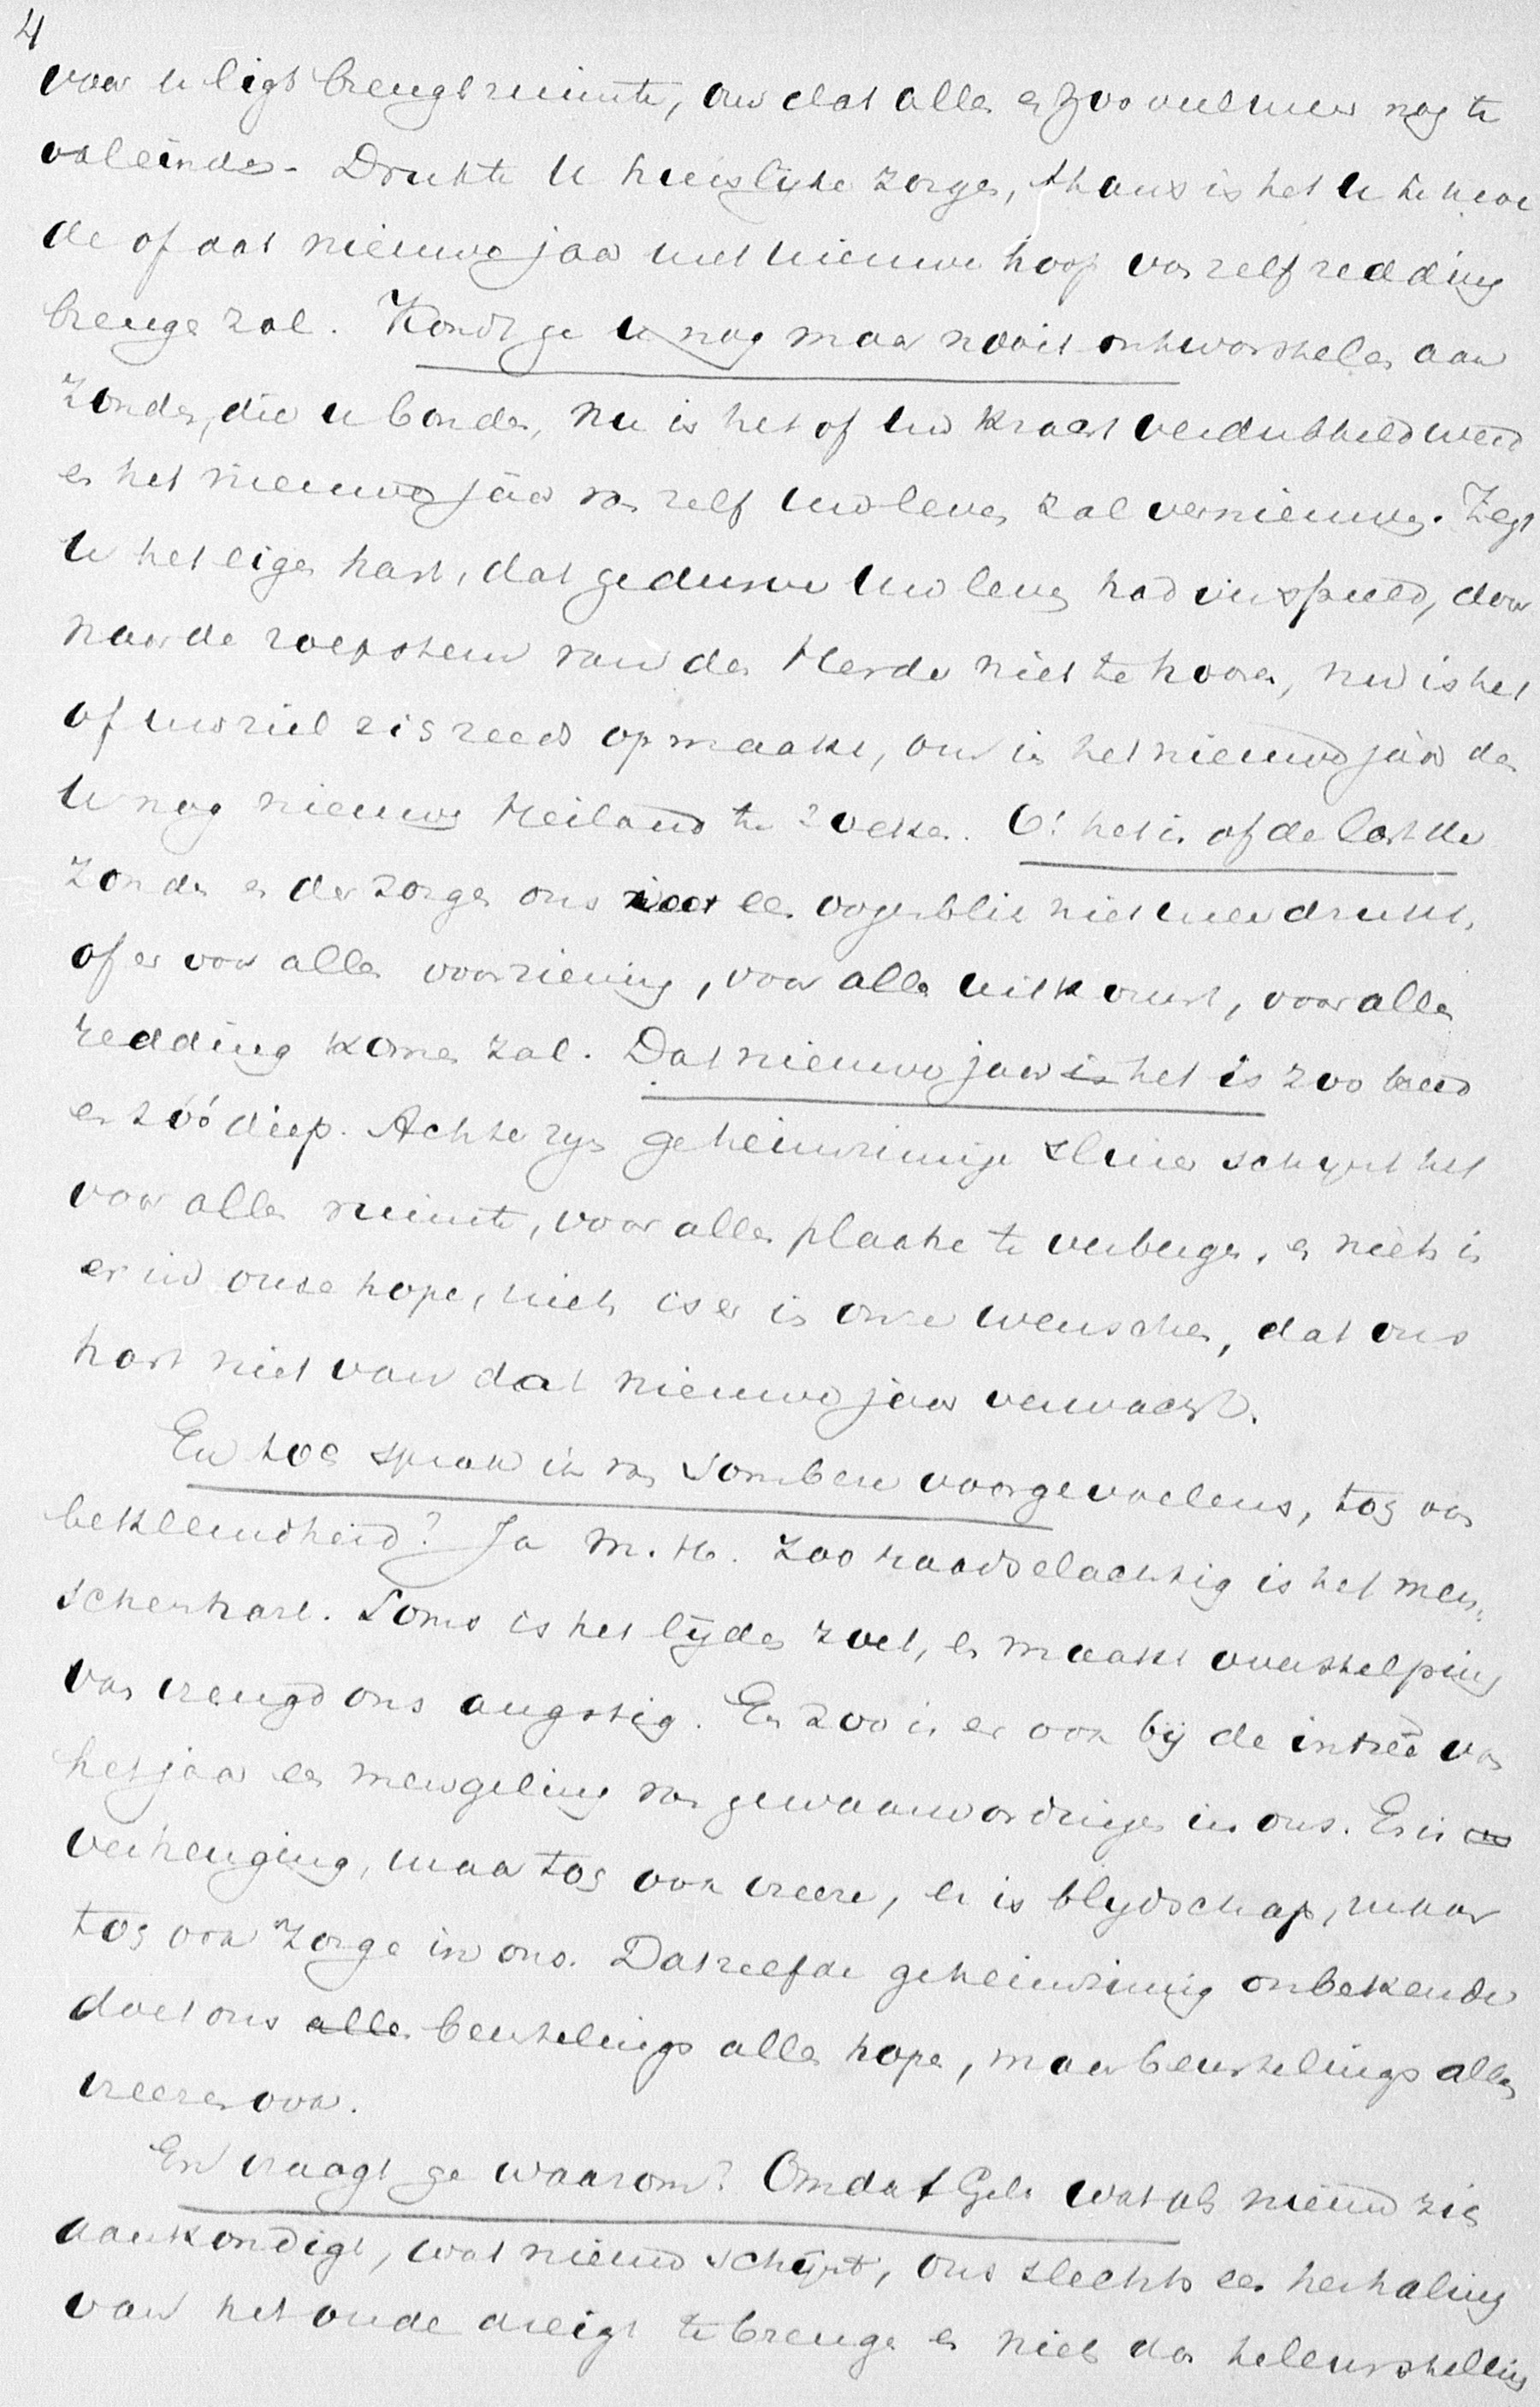 4
voor u ligt brengt ruimte, om dat alles en zoo veel meer nog te
voleinden. Drukte U huislijke zorgen, thans is het U te moe
de of dat nieuwe jaar met nieuwe hoop van zelf redding
brengen zal. Kondt ge U nog maar nooit ontworstelen aan
zonden, die u bonden, nu is het of uw kracht verdubbeld werd
en het nieuwe jaar van zelf uw leven zal vernieuwen. Zegt
U het eigen hart, dat ge dusver uw leven had verspeeld, door
naar de roepstem van den Herder niet te hooren, nu is het
of uw ziel zig reeds opmaakt, om in het nieuwe jaar den
U nog nieuwe Heiland te zoeken. O! het is of de last der
zonden en der zorgen ons voor een oogenblik niet meer drukt,
of er voor alles voorziening, voor alles uitkomst, voor alles
redding komen zal. Dat nieuwe jaar is het is zoo breed
en zóó diep. Achter zijn geheimzinnige sluier schijnt het
voor alles ruimte, voor alles plaatse te verbergen, en niets is
er in onze hope, niets is er in onze wenschen, dat ons
hart niet van dat nieuwe jaar verwacht.
En toe sprak ik van sombere voorgevoelens, tog van
beklemdheid? Ja M. H. zoo raadselachtig is het men-
schenhart. Soms is het lijden zoet, en maakt overstelping
van vreugd ons angstig. En zoo is er ook bij de intreê van
het jaar een mengeling van gewaarwordingen in ons. Er is
verheuging, maar tog ook vreeze, er is blijdschap, maar
tog ook zorge in ons. Datzelfde geheimzinnig onbekende
doet ons alles beurtelings alles hopen, maar beurtelings alles
vreezen ook.
En vraagt ge waarom? Omdat Gel. wat als nieuw zig
aankondigt, wat nieuw schijnt, ons slechts een herhaling
van het oude dreigt te brengen en niets dan teleurstelling